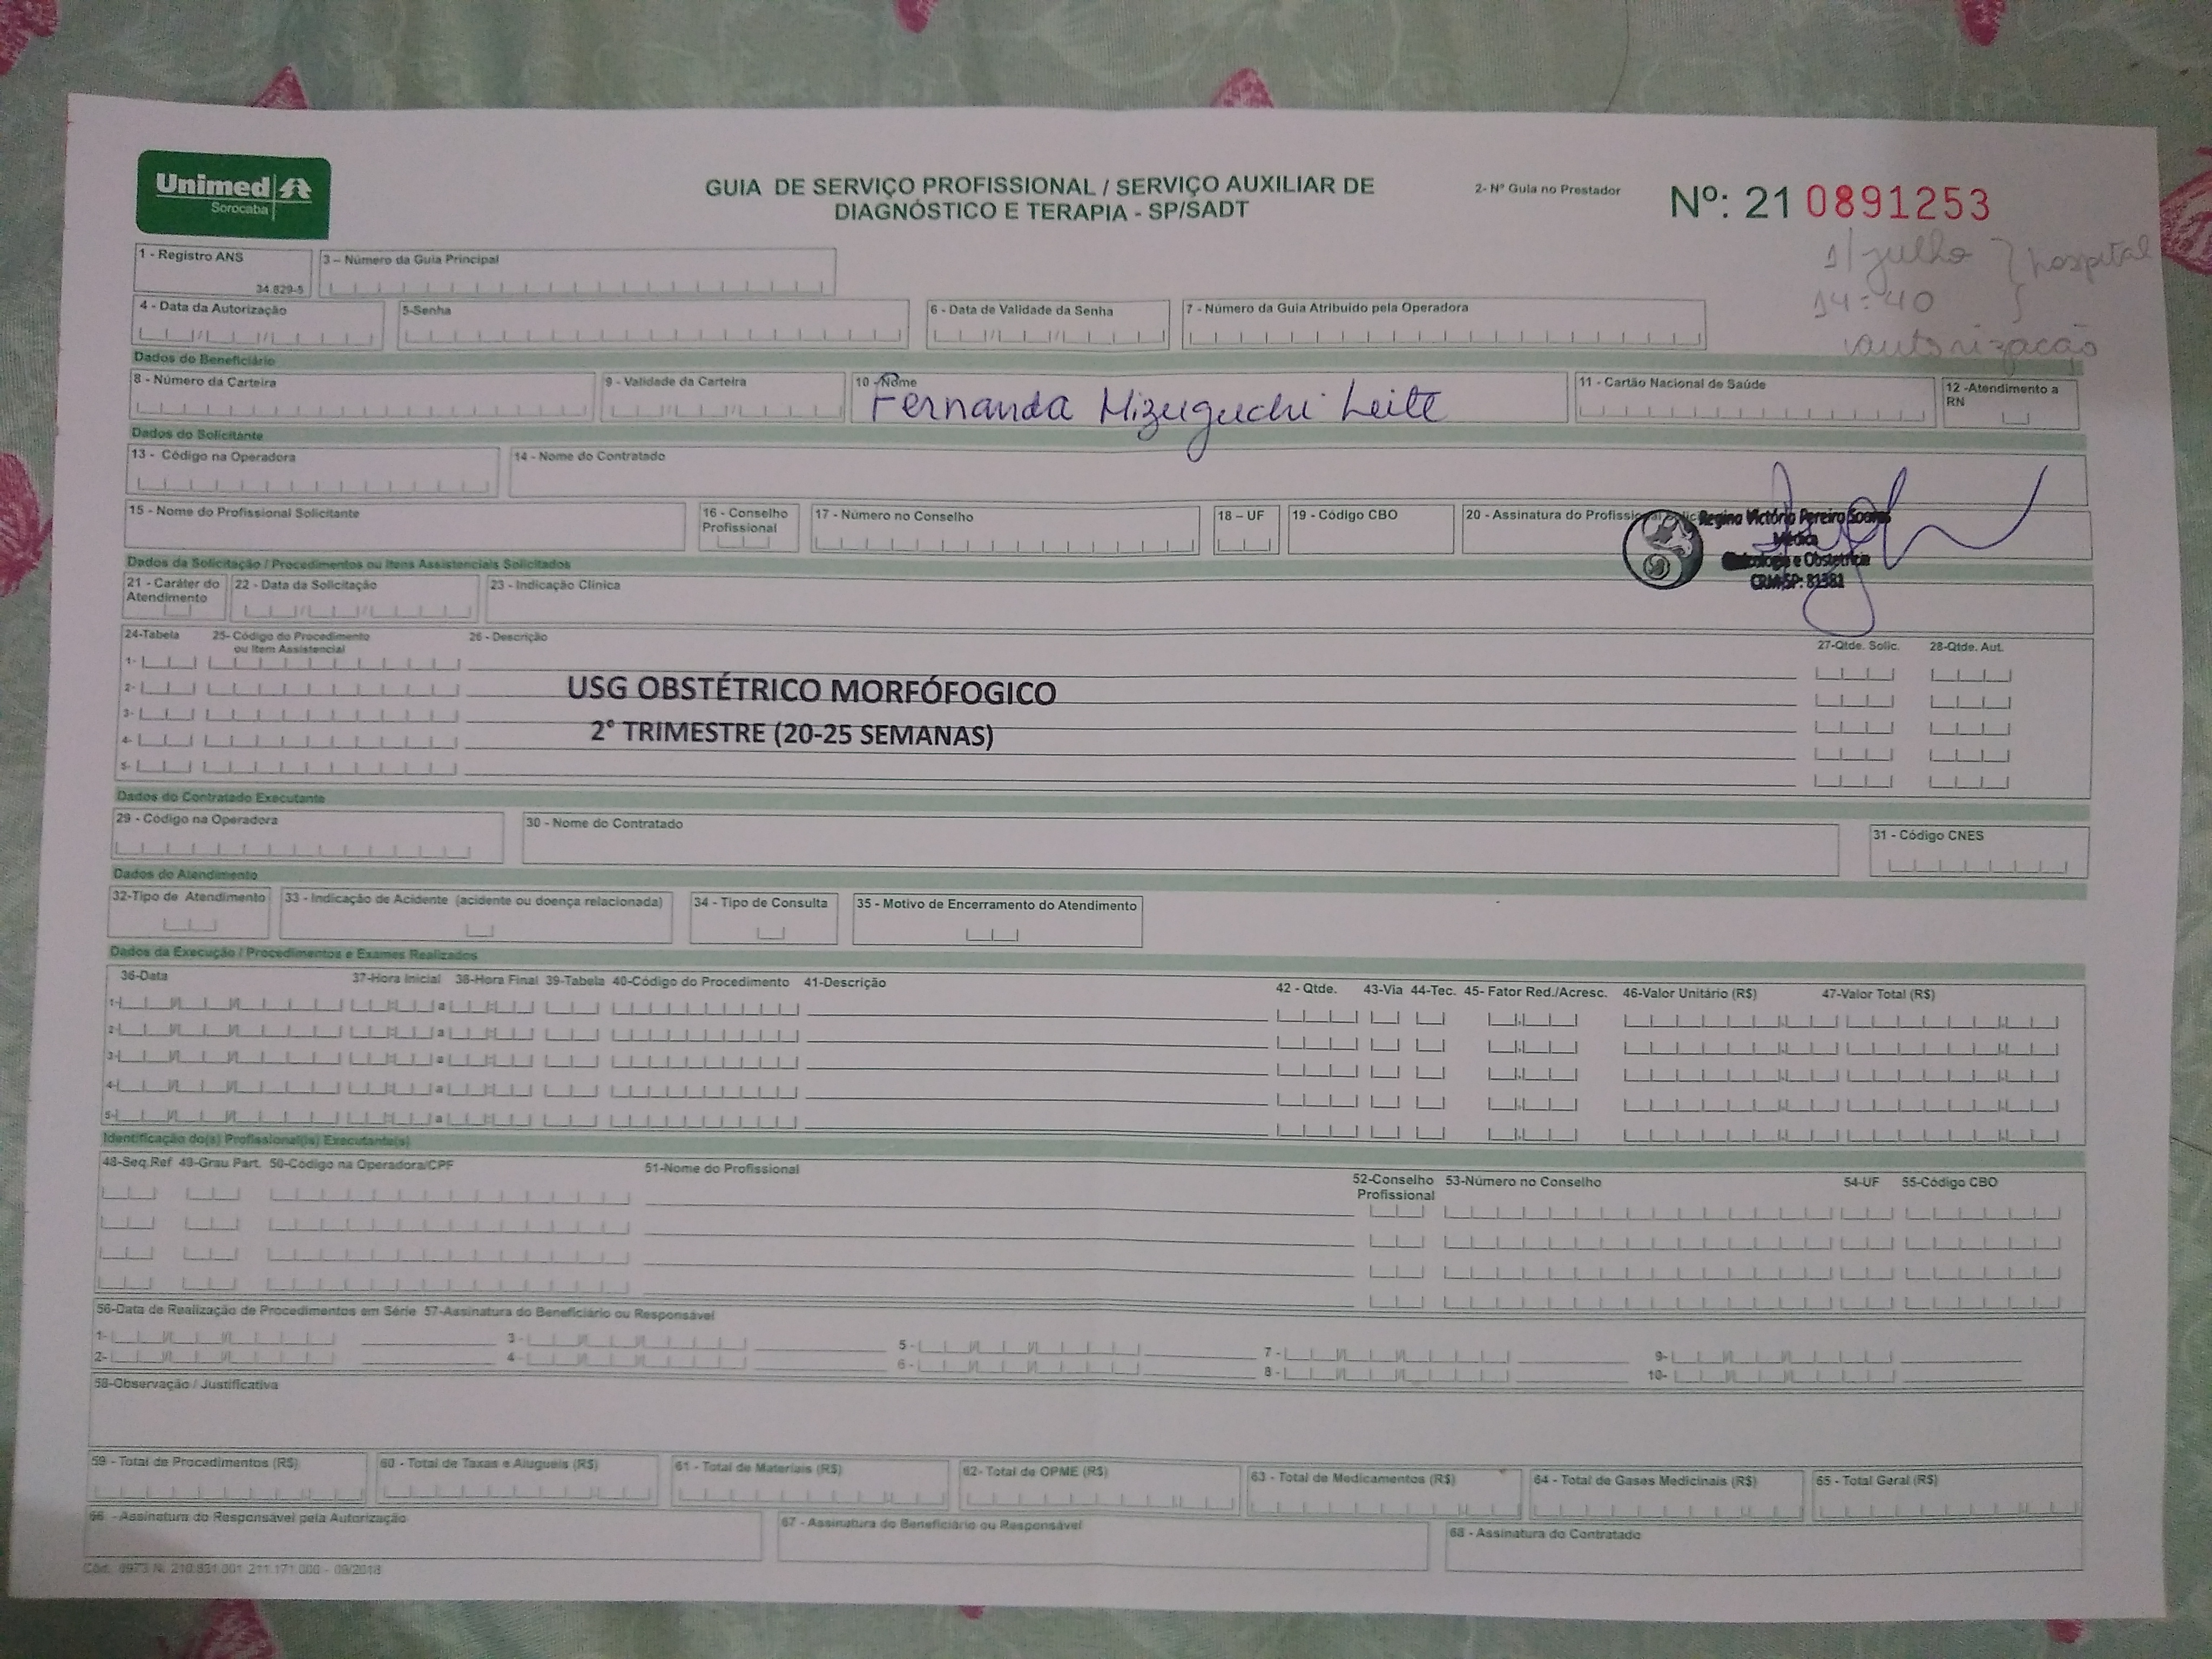 Unimed
Sorocaba
GUIA DE SERVIÇO PROFISSIONAL / SERVIÇO AUXILIAR DE
DIAGNÓSTICO E TERAPIA - SP/SADT
2- Nº Guia no Prestador
Nº: 21 0891253
1/julho } hospital
14:40
autorização
1 - Registro ANS
34.829-5
3 – Número da Guia Principal
4 - Data da Autorização
5-Senha
6 - Data de Validade da Senha
7 - Número da Guia Atribuido pela Operadora
Dados do Beneficiário
8 - Número da Carteira
9 - Validade da Carteira
10 - Nome
Fernanda Mizuguchi Leite
11 - Cartão Nacional de Saúde
12 -Atendimento a
RN
Dados do Solicitante
13 - Código na Operadora
14 - Nome do Contratado
15 - Nome do Profissional Solicitante
16 - Conselho
Profissional
17 - Número no Conselho
18 – UF
19 - Código CBO
20 - Assinatura do Profissional
Regina Victória Pereira Soares
Médica
Ginecologia e Obstetrícia
CRM-SP: 81381
Dados da Solicitação / Procedimentos ou Itens Assistenciais Solicitados
21 - Caráter do
Atendimento
22 - Data da Solicitação
23 - Indicação Clínica
24-Tabela 25- Código do Procedimento
ou Item Assistencial
26 - Descrição
27-Qtde. Solic. 28-Qtde. Aut.
1-
2-
USG OBSTÉTRICO MORFÓFOGICO
3-
2° TRIMESTRE (20-25 SEMANAS)
4-
5-
Dados do Contratado Executante
29 - Código na Operadora
30 - Nome do Contratado
31 - Código CNES
Dados do Atendimento
32-Tipo de Atendimento
33 - Indicação de Acidente (acidente ou doença relacionada)
34 - Tipo de Consulta
35 - Motivo de Encerramento do Atendimento
Dados da Execução / Procedimentos e Exames Realizados
36-Data 37-Hora Inicial 38-Hora Final 39-Tabela 40-Código do Procedimento 41-Descrição 42 - Qtde. 43-Via 44-Tec. 45- Fator Red./Acresc. 46-Valor Unitário (R$) 47-Valor Total (R$)
1- a
2- a
3- a
4- a
5- a
Identificação do(s) Profissional(is) Executante(s)
48-Seq.Ref 49-Grau Part. 50-Código na Operadora/CPF 51-Nome do Profissional 52-Conselho
Profissional
53-Número no Conselho 54-UF 55-Código CBO
56-Data de Realização de Procedimentos em Série 57-Assinatura do Beneficiário ou Responsável
1- 3- 5- 7- 9-
2- 4- 6- 8- 10-
58-Observação / Justificativa
59 - Total de Procedimentos (R$)
60 - Total de Taxas e Alugueis (R$)
61 - Total de Materiais (R$)
62- Total de OPME (R$)
63 - Total de Medicamentos (R$)
64 - Total de Gases Medicinais (R$)
65 - Total Geral (R$)
66 - Assinatura do Responsável pela Autorização
67 - Assinatura do Beneficiário ou Responsável
68 - Assinatura do Contratado
Cód. 8973 N. 210.821.001 211.171.000 - 09/2018